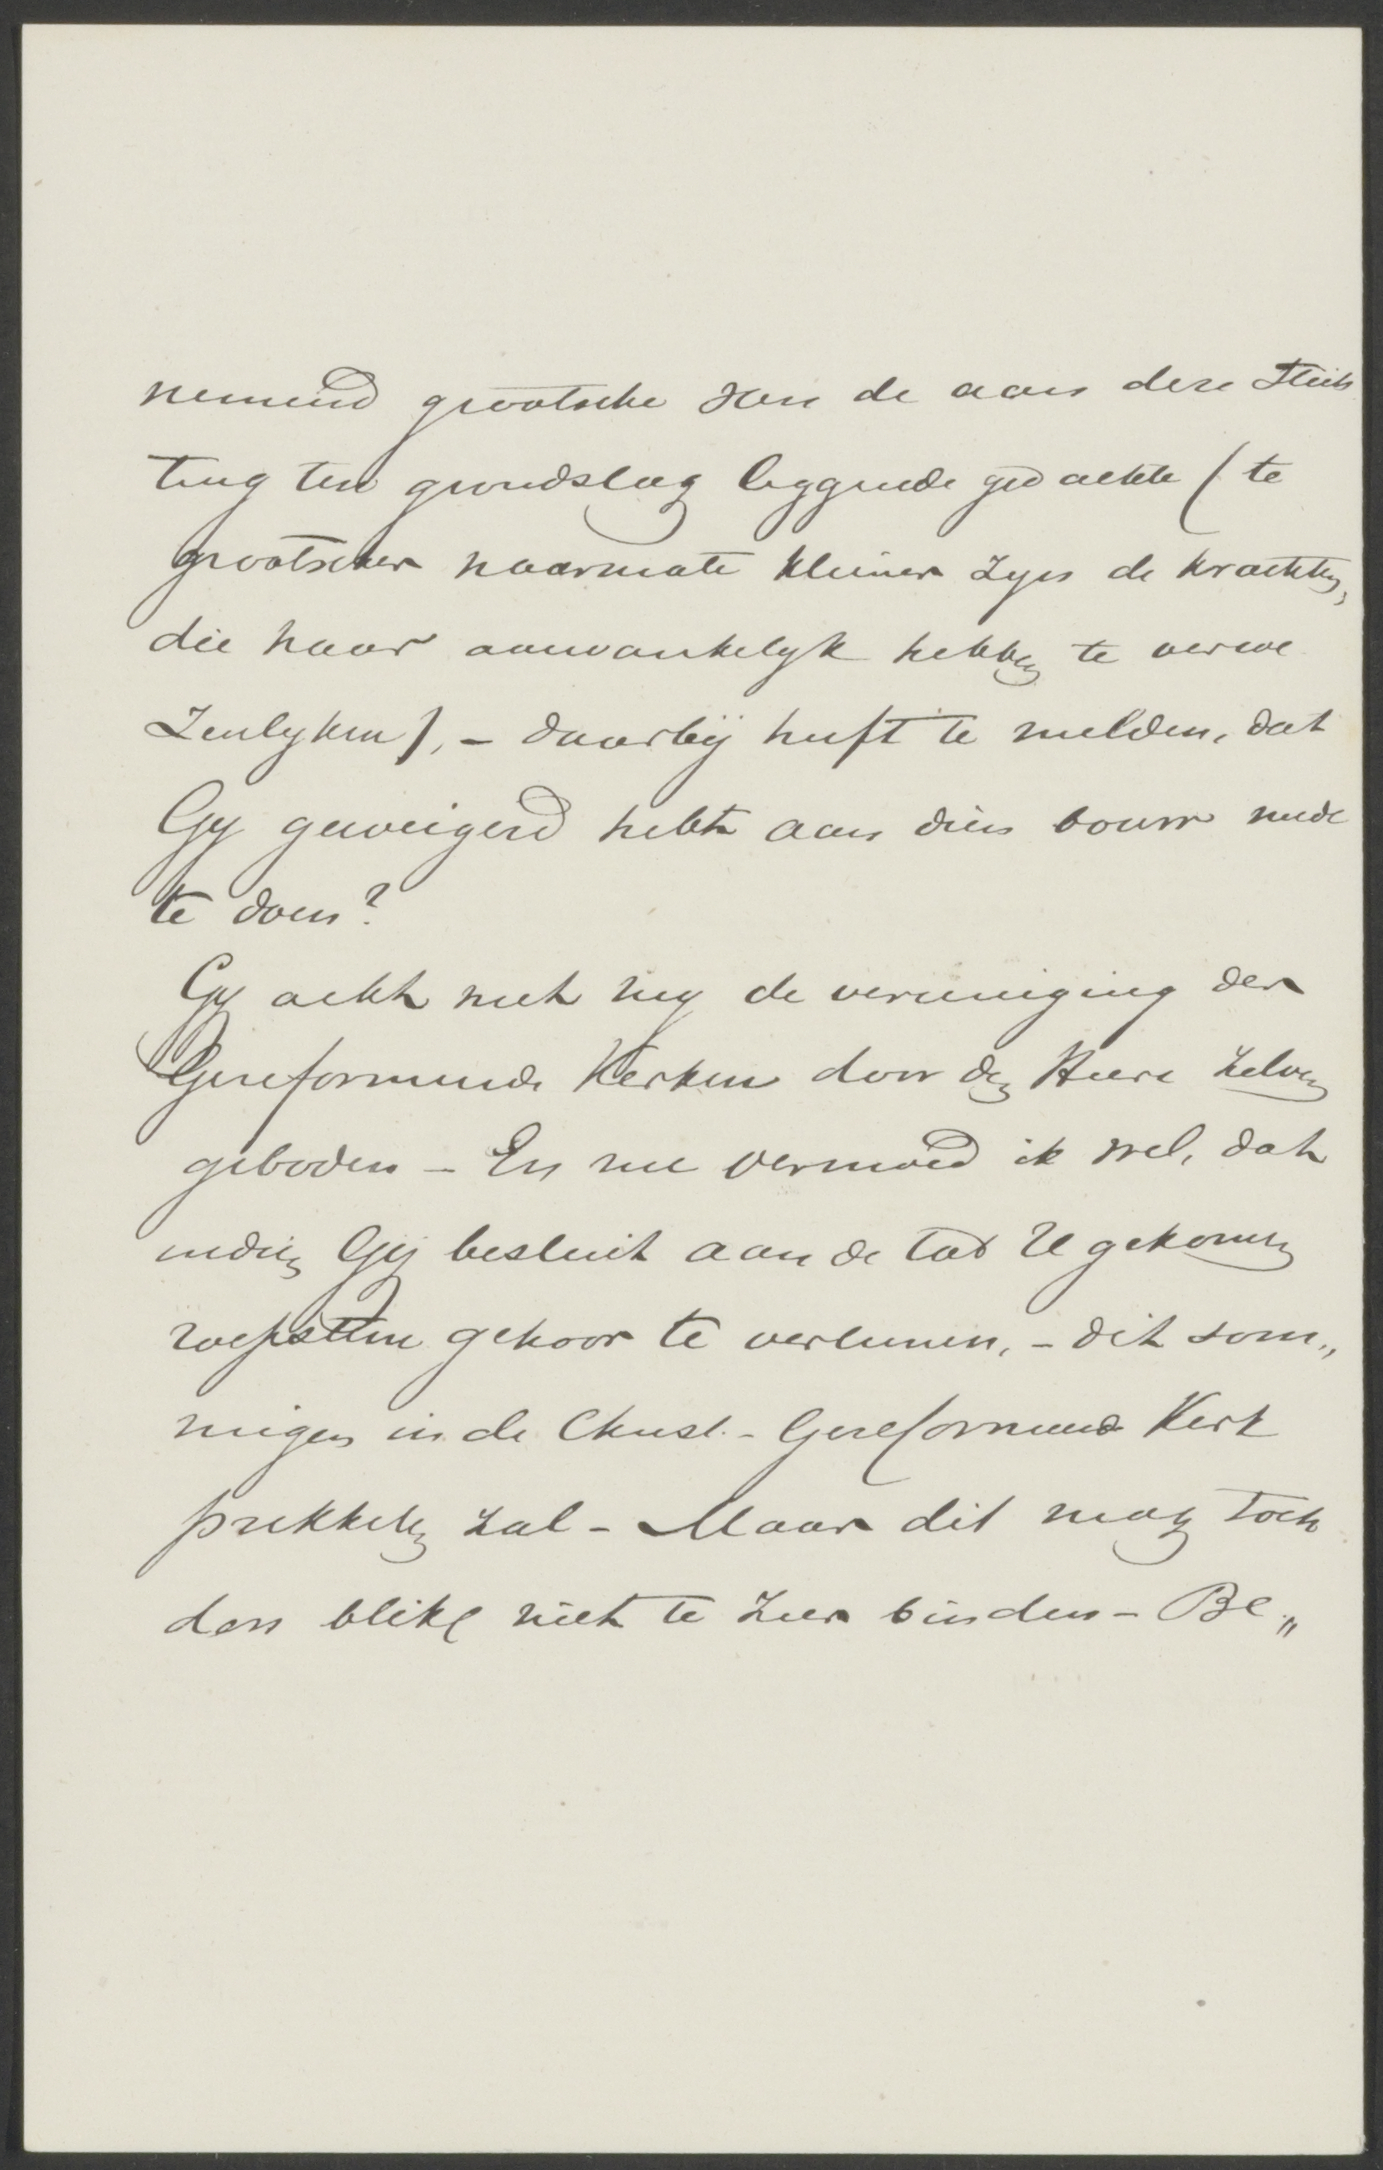 nemend grootsche van de aan deze Stich
ting ten grondslag liggende gedachte (te
grootscher naarmate kleiner zyn de krachten,
die haar aanvankelyk hebben te verwe
zenlyken), - daarbij heeft te melden, dat
Gy geweigerd hebt aan dien bouw mede
te doen?
Gy acht met my de vereeniging der
Gereformeerde Kerken door den Heere zelven
geboden - En nu vermoed ik wel, dat
indien Gij besluit aan de tot U gekomen
roepstem gehoor te verleenen, - dit som„
migen in de Christ. - Gereformeerde Kerk
prikkelen zal - Maar dit mag toch
den blik niet te zeer binden - Be„